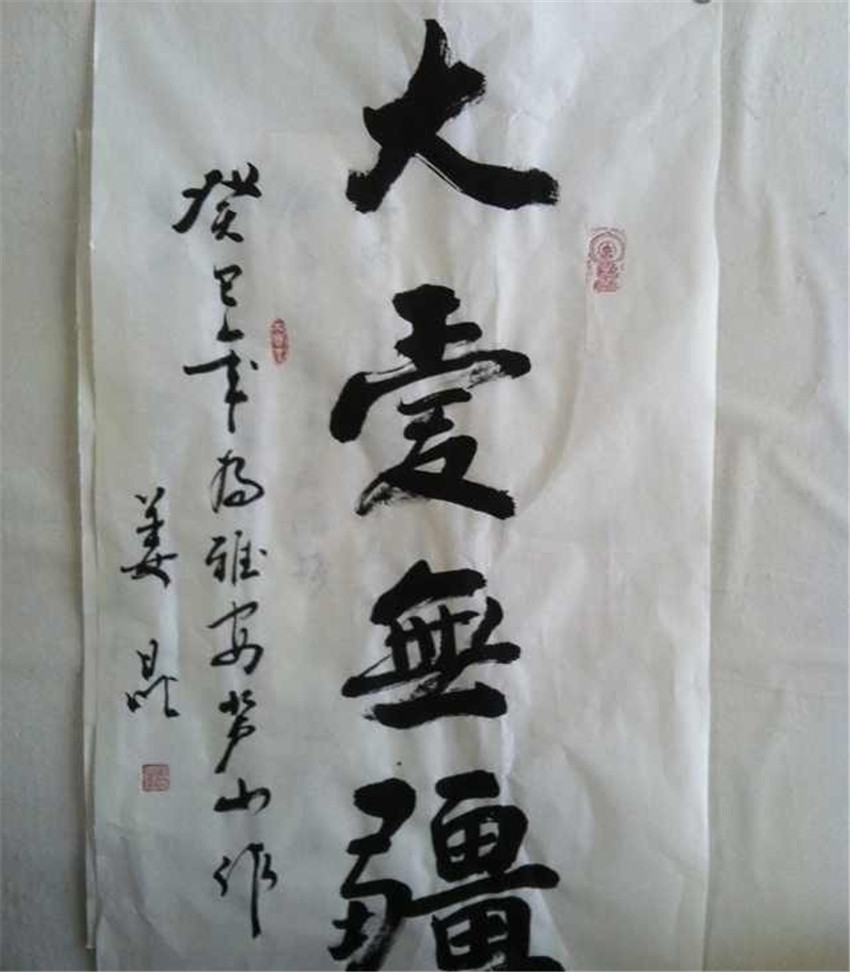 大愛無疆
癸巳年为雅安芦山作
姜昆